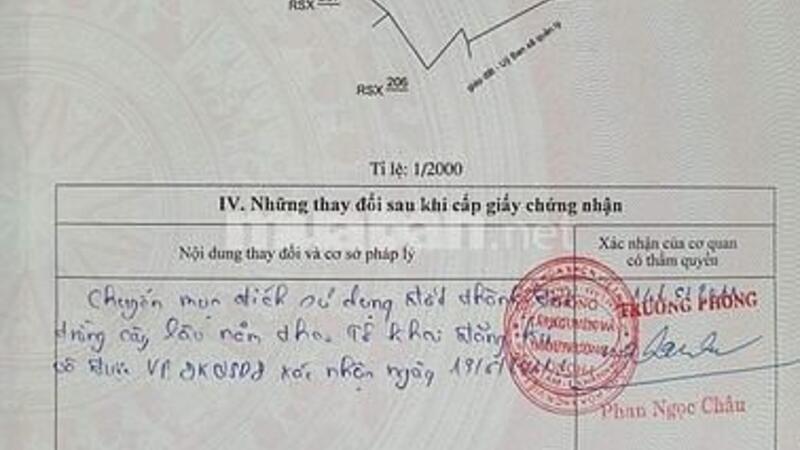 RSX
RSX 206
giáp đất - Uỷ Ban xã quản lý
Tỉ lệ: 1/2000
IV. Những thay đổi sau khi cấp giấy chứng nhận
Nội dung thay đổi và cơ sở pháp lý
Xác nhận của cơ quan
có thẩm quyền
muaban.net
Chuyển mục đích sử dụng đất thành đất
trồng cây lâu năm theo Tờ khai đăng ký
đã được VP. ĐKQSDĐ xác nhận ngày
TRƯỞNG PHÒNG
Phan Ngọc Châu